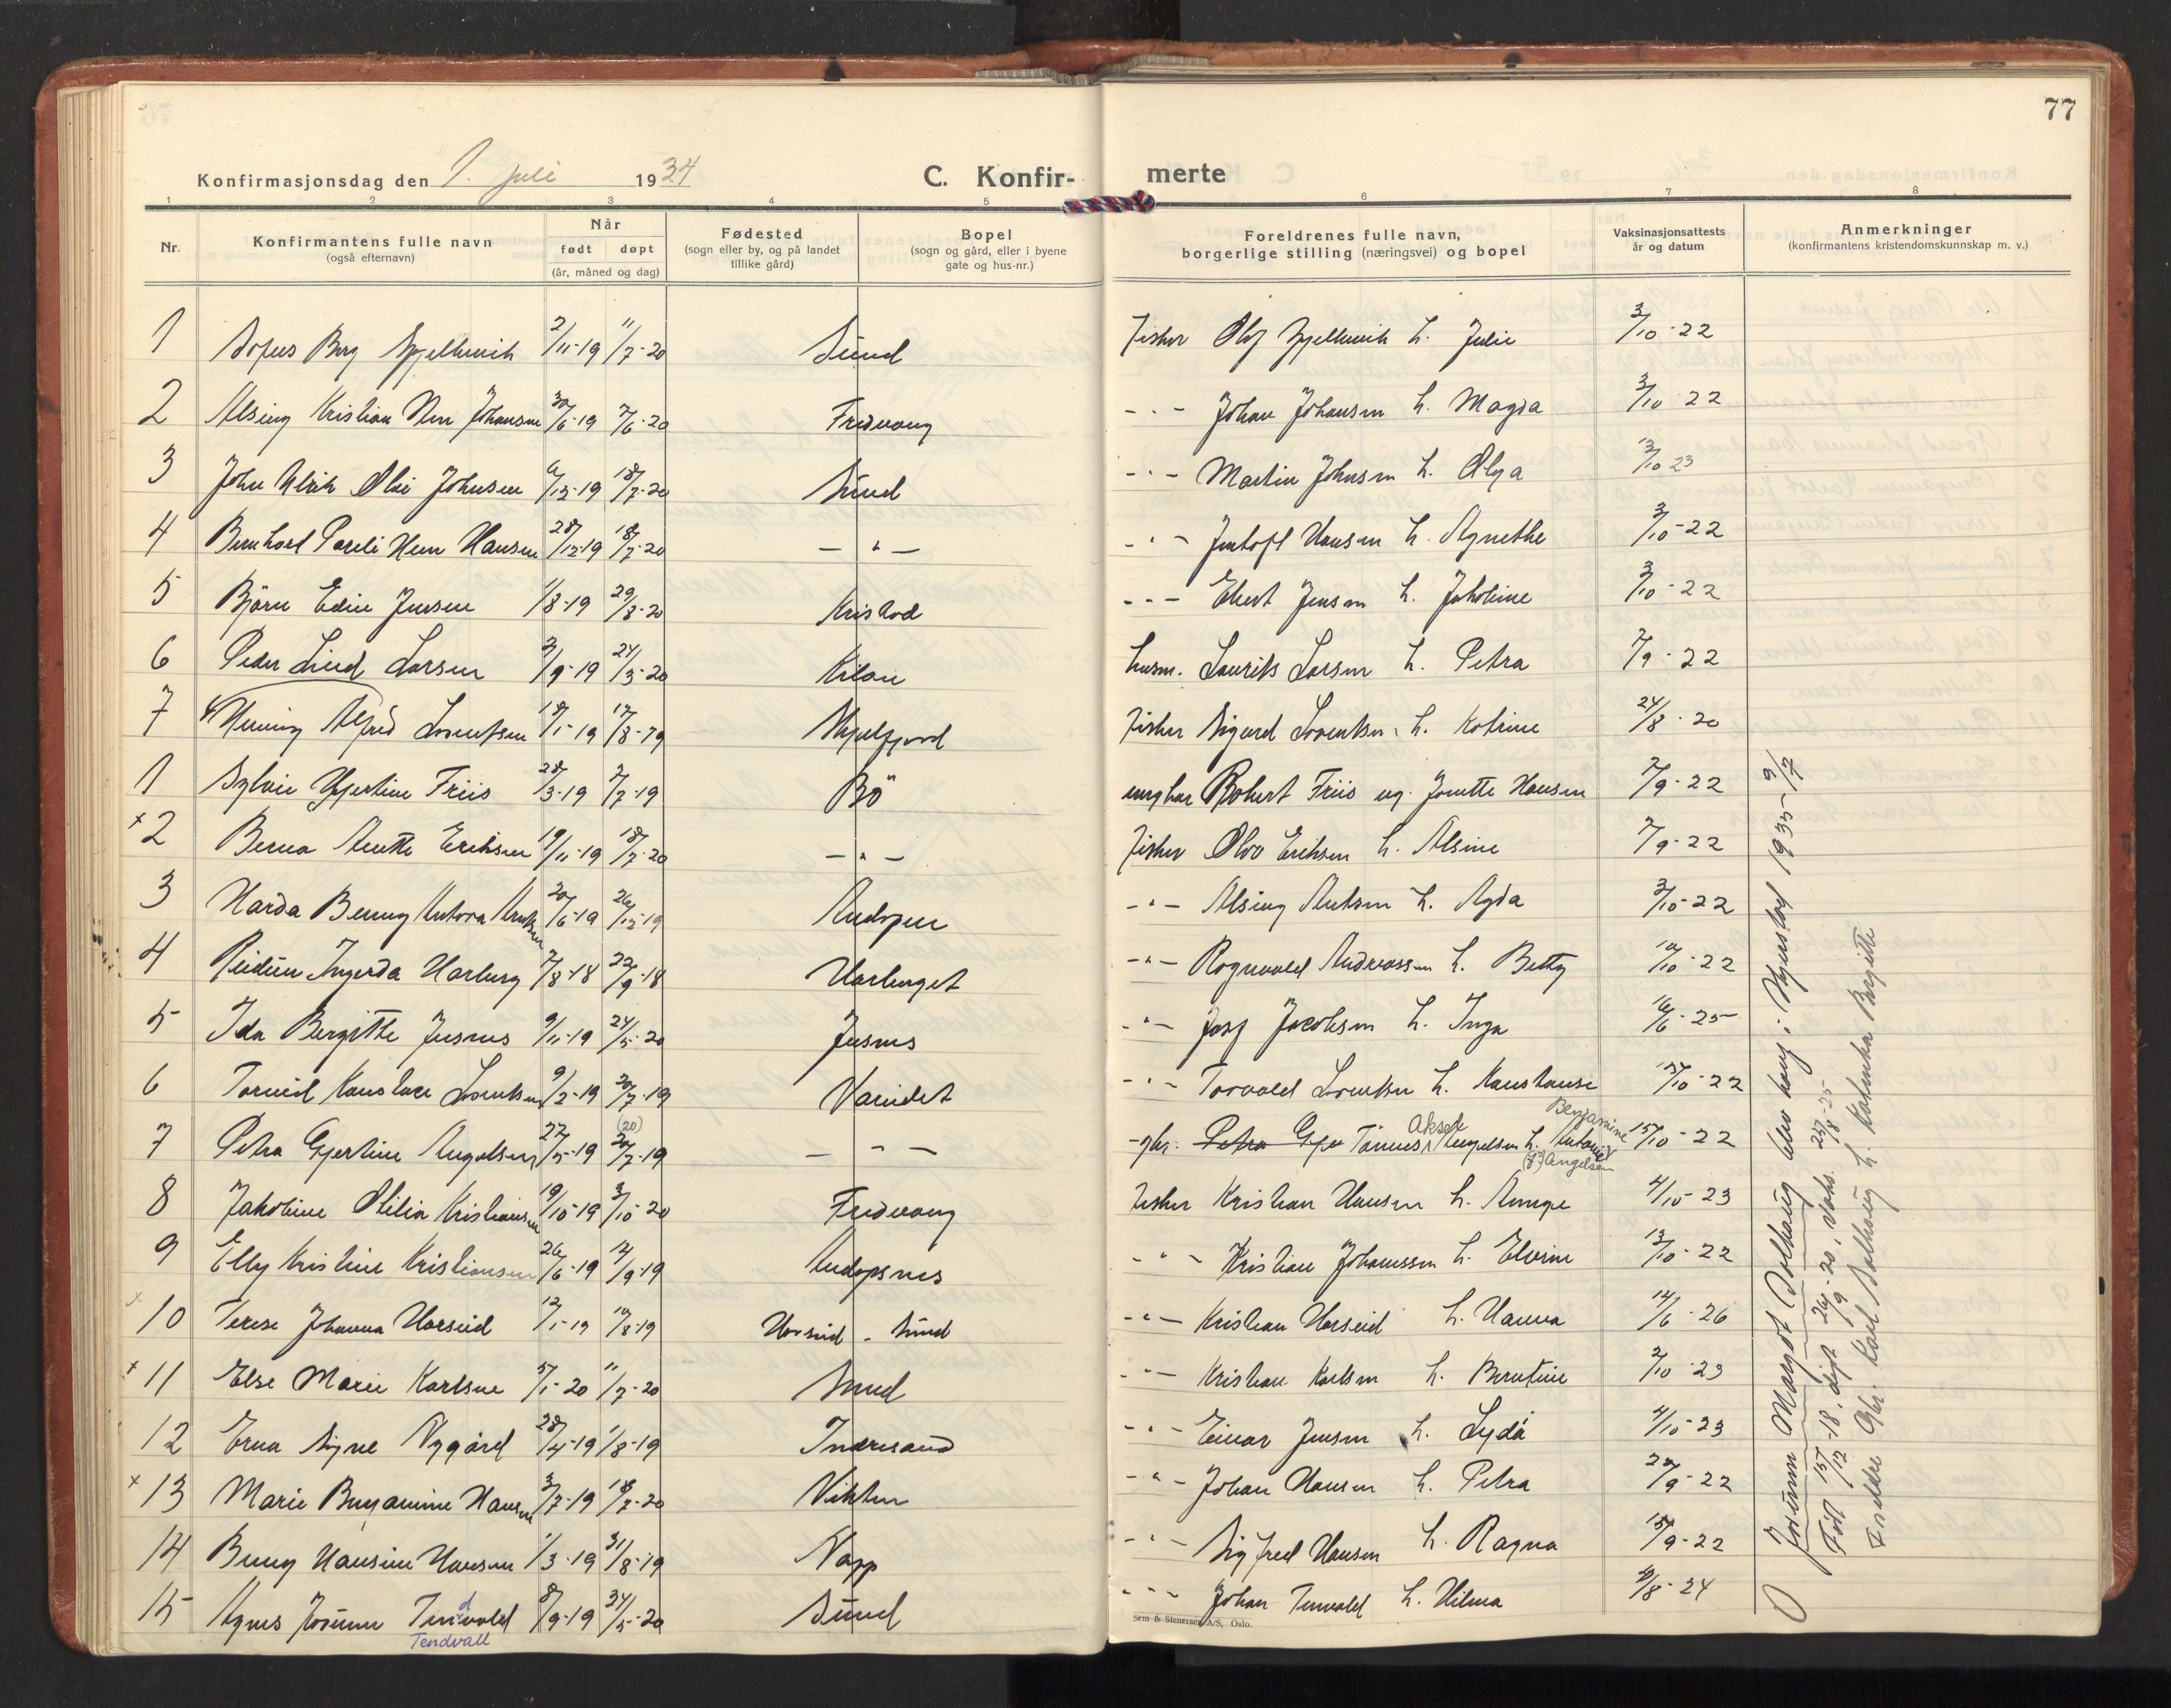 77
Konfirmasjonsdag den 1. juli 1934
C. Konfir- merte
1 2 3 4 5 6 7 8
Nr.
Konfirmantens fulle navn
(også efternavn)
Når
født døpt
(år, måned og dag)
Fødested
(sogn eller by, og på landet
tillike gård)
Bopel
(sogn og gård, eller i byene
gate og hus-nr.)
Foreldrenes fulle navn,
borgerlige stilling (næringsvei) og bopel
Vaksinasjonsattests
år og datum
Anmerkninger
(konfirmantens kristendomskunnskap m. v.)
1 Sofus Berg 2/11-19 11/7-20 Sund Fisker Olaf h. Julie 3/10-22
2 Alsing Kristian Johansen 30/6-19 7/6-20 Fredvang - " - Johan Johansen h. Magda 3/10 22
3 John Ulrik Olai Johnsen 6/12-19 18/7-20 Sund - " - Martin Johnsen h. Olga 13/10 23
4 Bernhart Pareli Hansen 28/12-19 18/7-20 - " - - " - Hansen h. Agnethe 3/10-22
5 Björn Edin Jensen 1/8-19 29/8-20 - " - Ebert Jensen h. Jakobine 3/10-22
6 Peder Lind Larsen 3/9-19 24/5-20 Kilan husm. Laurits Larsen h. Petra 7/9-22
7 Henning Alfred Lorentsen 18/1-19 17/8-19 Skjelfjord Fisker Sigurd Lorentsen h. Katrine 24/8-20
1 Sylvi Hjertine Friis 28/3-19 7/7-19 Bö ungkar Robert Friis ug. Jonette Hansen 7/9-22
x 2 Berna Anette Eriksen 19/11-19 18/7-20 - " - Fisker Olav Eriksen h. Alsine 7/9-22
3 Harda Benny Antora 20/6-19 26/12-19 Andopen - " - Alsing Antsen h. Agda 3/10-22
4 Reidun Ingerda Marburg 7/8-18 22/9-18 - " - Rognvald Andreassen h. Betty 10/10-22
5 Ida Bergitte Jusnes 9/11-19 24/5-20 Jusnes - " - Josef Jacobsen h. Inga 16/6-25
6 Torneid Konstanse Lorentsen 9/2-19 20/7-19 Vareidet - " - Torvald Lorentsen h. Konstanse 15/10-22
7 Petra Gjertine Angelsen 27/5-19 (20) 20/7-19 - " - gbr. Petra Gje Tönnes Aksel Angelsen h. Antonie Benjamine (f.) Angelsen 15/10-22
8 Jakobine Otilia Kristiansen 19/10-19 3/10-20 Fredvang Fisker Kristian Hansen h. 4/10-23
9 Elly Kristine Kristiansen 26/6-19 14/9-19 Andopsnes - " - Kristian Johanssen h. Elvine 13/10-22
10 Terese Johanna Horseid 12/1-19 10/8-19 Horseid - Sund - " - Kristian Horseid h. Hanna 14/6-26
x 11 Else Marie Karlsen 5/1-20 11/7-20 Sund - " - Kristian Karlsen h. Berntine 2/10-23
12 Erna Signe Nygård 28/4-19 1/8-19 Indresand - " - Einar Jensen h. Lydia 4/10-23
x 13 Marie Benjamine Hansen 3/7-19 18/7-20 Vikten - " - Johan Hansen h. Petra 22/9-22
14 Benny Hansine Hansen 1/3-19 31/8-19 Napp - " - Sigfred Hansen h. Ragna 15/9-22
15 Agnes Jorunn Tendvald 8/9-19 34/5-20 Sund - " - Johan Tenvald h. Hilma 9/8-24
Tendvall
Sem & Stenersen A/S, Oslo.
Jorunn Margot Solhaug blev konf. i Hjerstad 1935 9/7
Föt 15/12-18. döpt 26/9-20, vaks. 27/8-25
Foreldre Gbr. Karl Solhaug h. Katinka Birgitte